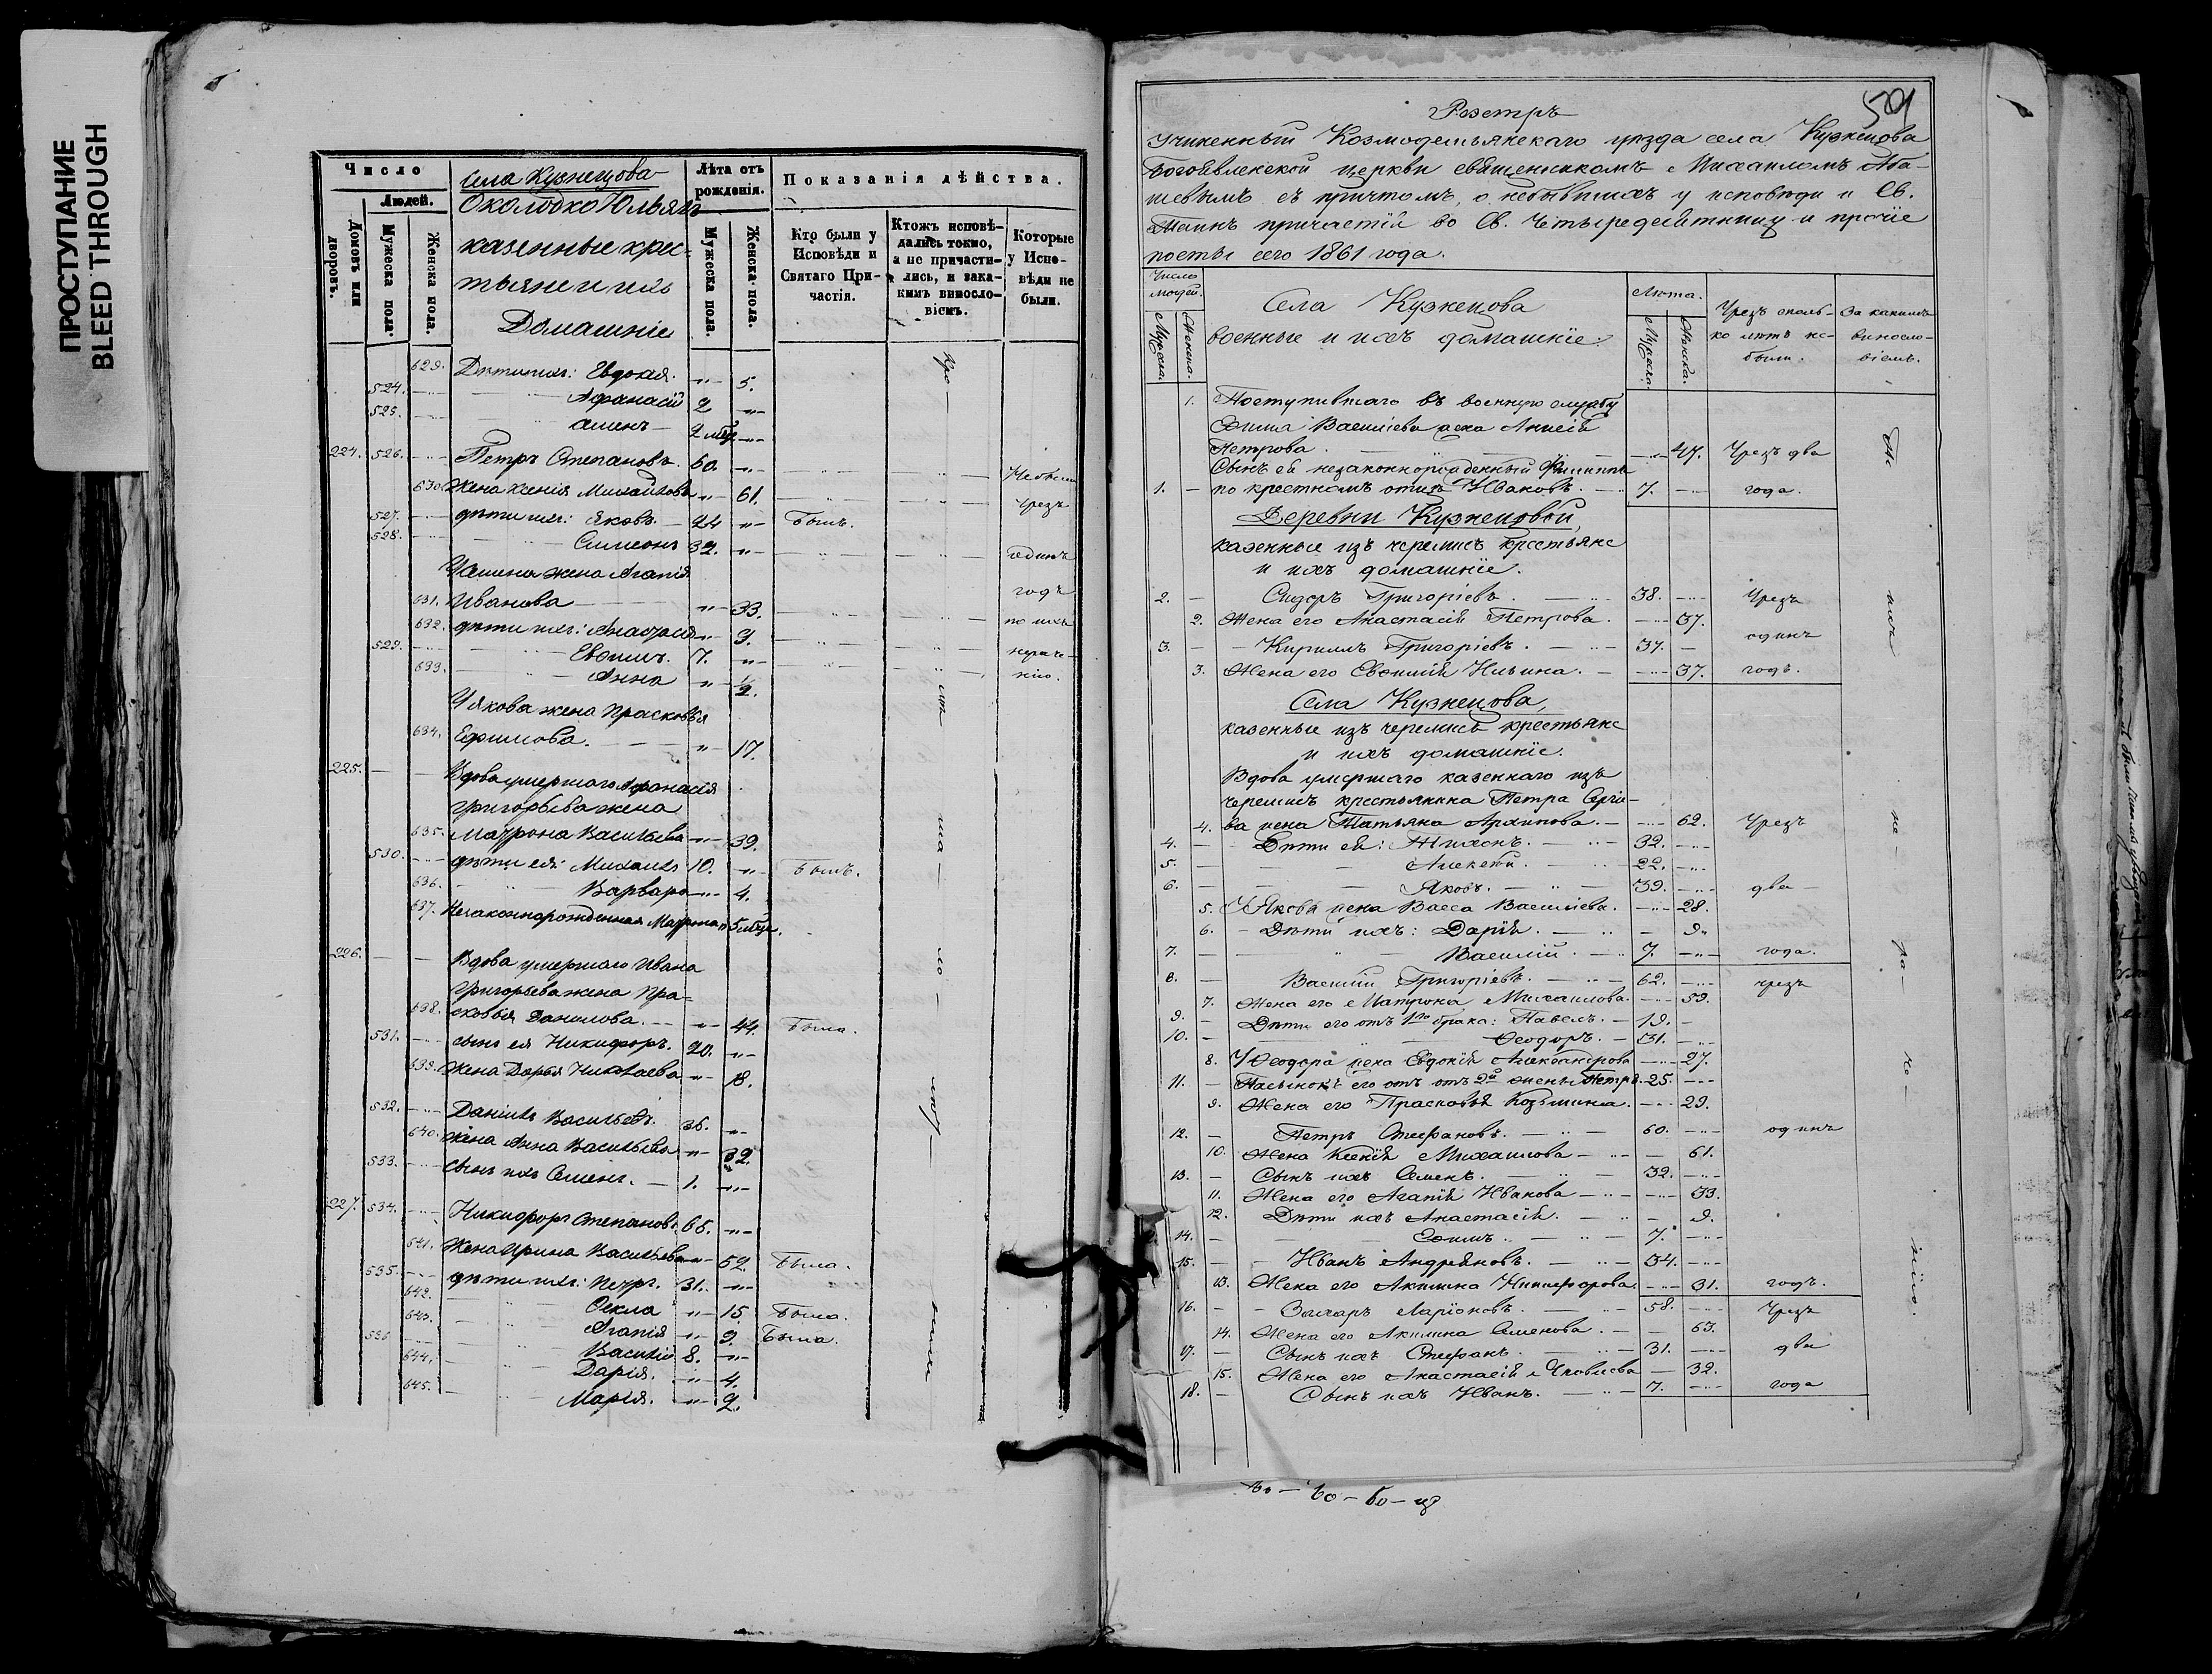 ПРОСТУПАНИЕ
BLEED THROUGH
Число
Людей.
Домовъ или дворовъ.
Мужеска пола.
Женска пола.
Села Кузнецова
Околодко Юльялъ
казенные крес-
тьяне и ихъ
Домашніе
Лѣта отъ рожденія.
Мужеска пола.
Женска пола.
Показанія дѣйства.
Кто были у Исповѣди и Святаго Причастія.
Ктожъ исповѣдались токмо, а не причастились, и за какимъ винословіемъ.
Которые у Исповѣди не были.
629. Дѣти ихъ: Евдокія. -"- 5.
524. Афанасій 2 -"-
525. Семенъ 2 мѣс. -"-
224. 526. Петръ Степановъ. 60. -"-
630. Жена Ксенія Михайлова -"- 61.
чрезъ
527. дѣти ихъ: Яковъ. 24 -"- Былъ.
528. Симеонъ 32. -"-
единъ
У Семена жена Агапія
годъ
631. Иванова -"- 33.
по ихъ
632. дѣти ихъ: Анастасія -"- 9.
529. Евфимъ. 7. -"-
нераче-
633. Анна -"- ½.
нію.
У Якова жена Прасковья
634. Ефимова. -"- 17.
225. Вдова умершаго Афанасія
Григорьева жена
635. Матрона Васильева -"- 39.
530. дѣти ея: Михаилъ 10. -"- Былъ.
636. Варвара -"- 4.
637. Незаконнорожденная Матрона -"- 5 мѣс.
226. Вдова умершаго Ивана
Григорьева жена Пра-
638. сковья Данилова. -"- 44. Была.
531. сынъ ея Никифоръ. 20. -"-
639. Жена Дарья Николаева -"- 18.
532. Даніилъ Васильевъ. 36. -"-
640. Жена Анна Васильева -"- 32.
533. Сынъ ихъ Семенъ. 1. -"-
227. 534. Никифоръ Степановъ 65. -"-
641. Жена Ирина Васильева -"- 52. Была.
535. дѣти ихъ: Петръ. 31. -"-
642. Ѳекла -"- 15. Была.
643. Агапія -"- 9. Была.
536 Василій 8. -"-
644. Дарія. -"- 4.
645. Марія. -"- 2.
501
Реэстръ
Учиненный Козмодемьянскаго уѣзда села Кузнецова
Богоявленской церкви священникомъ Михаиломъ
съ причтомъ, о небывшихъ у исповѣди и Св.
Таинъ причастія во Св. Четыредесятницу и прочіе
посты сего 1861 года.
Число людей.
Мужска.
Женска.
Села Кузнецова
военные и ихъ домашніе.
Лѣта.
Мужска.
Женска.
Чрезъ сколь-
ко лѣтъ не-
были.
За какимъ
виносло-
віемъ.
1. Поступившаго въ военную службу
Васильева жена Анисія
Петрова. 47. Чрезъ два
Сынъ ея незаконнорожденный Филиппъ
1. по крестномъ отцѣ Ивановъ. 7. года.
Деревни Кузнецовой,
казенные изъ черемисъ крестьяне
и ихъ домашніе.
2. Сидоръ Григоріевъ. 38. Чрезъ
2. Жена его Анастасія Петрова. 37.
одинъ
3. Кириллъ Григоріевъ. 37.
3. Жена его Евфимія Ильина. 37. годъ.
Села Кузнецова,
казенные изъ черемисъ крестьяне
и ихъ домашніе.
Вдова умершаго казеннаго изъ
черемисъ крестьянина Петра Сергіе-
4. ва жена Татьяна Архипова. 62. Чрезъ
4. Дѣти ея: Тихонъ. 32.
5. Алексѣй. 22.
6. Яковъ. 39. два
5. У Якова жена Васса Васильева. 28.
6. Дѣти ихъ: Дарія. 9.
7. Василій. 7. года.
8. Василій Григоріевъ. 62. чрезъ
7. Жена его Матрона Михаилова. 59.
9. Дѣти его отъ 1го брака: Павелъ. 19.
10. Ѳеодоръ. 31.
8. У Ѳеодора жена Евдокія Александрова 27.
11. Пасынокъ его отъ отъ 2й жены Петръ. 25.
9. Жена его Прасковья Козьмина. 29.
12. Петръ Стефановъ. 60. одинъ
10. Жена Ксенія Михаилова 61.
13. Сынъ ихъ Семенъ. 32.
11. Жена его Агапія Иванова 33.
12. Дѣти ихъ Анастасія. 9.
14. Ефимъ. 7.
15. Иванъ Андреяновъ. 34.
13. Жена его Акилина Никифорова. 31. годъ.
16. Захаръ Ларіоновъ. 58. Чрезъ
14. Жена его Акилина Семенова. 63.
17. Сынъ ихъ Стефанъ. 31. два
15. Жена его Анастасія Яковлева 32.
18. Сынъ ихъ Иванъ. 7. года